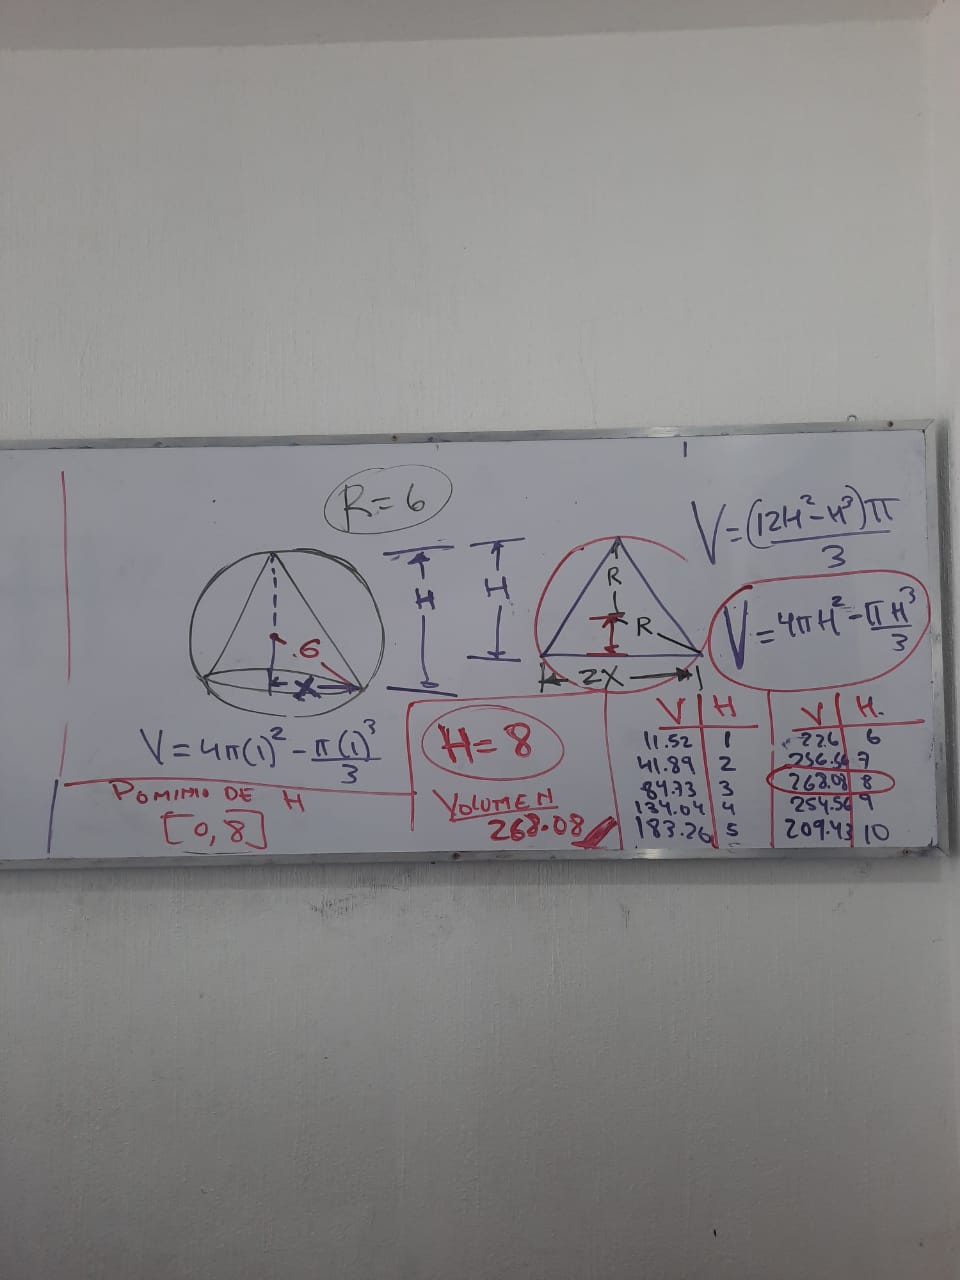 R=6
V=(12H²-H³)π
3
H
H
R
R
.6
X
2X
V=4πH²-πH³
3
V=4π(1)²-π(1)³
3
DOMINIO DE H
[0,8]
H=8
VOLUMEN
268.08
V H
11.52 1
41.89 2
84.73 3
134.04 4
183.26 5
V H.
226 6
256.56 7
268.08 8
254.56 9
209.43 10